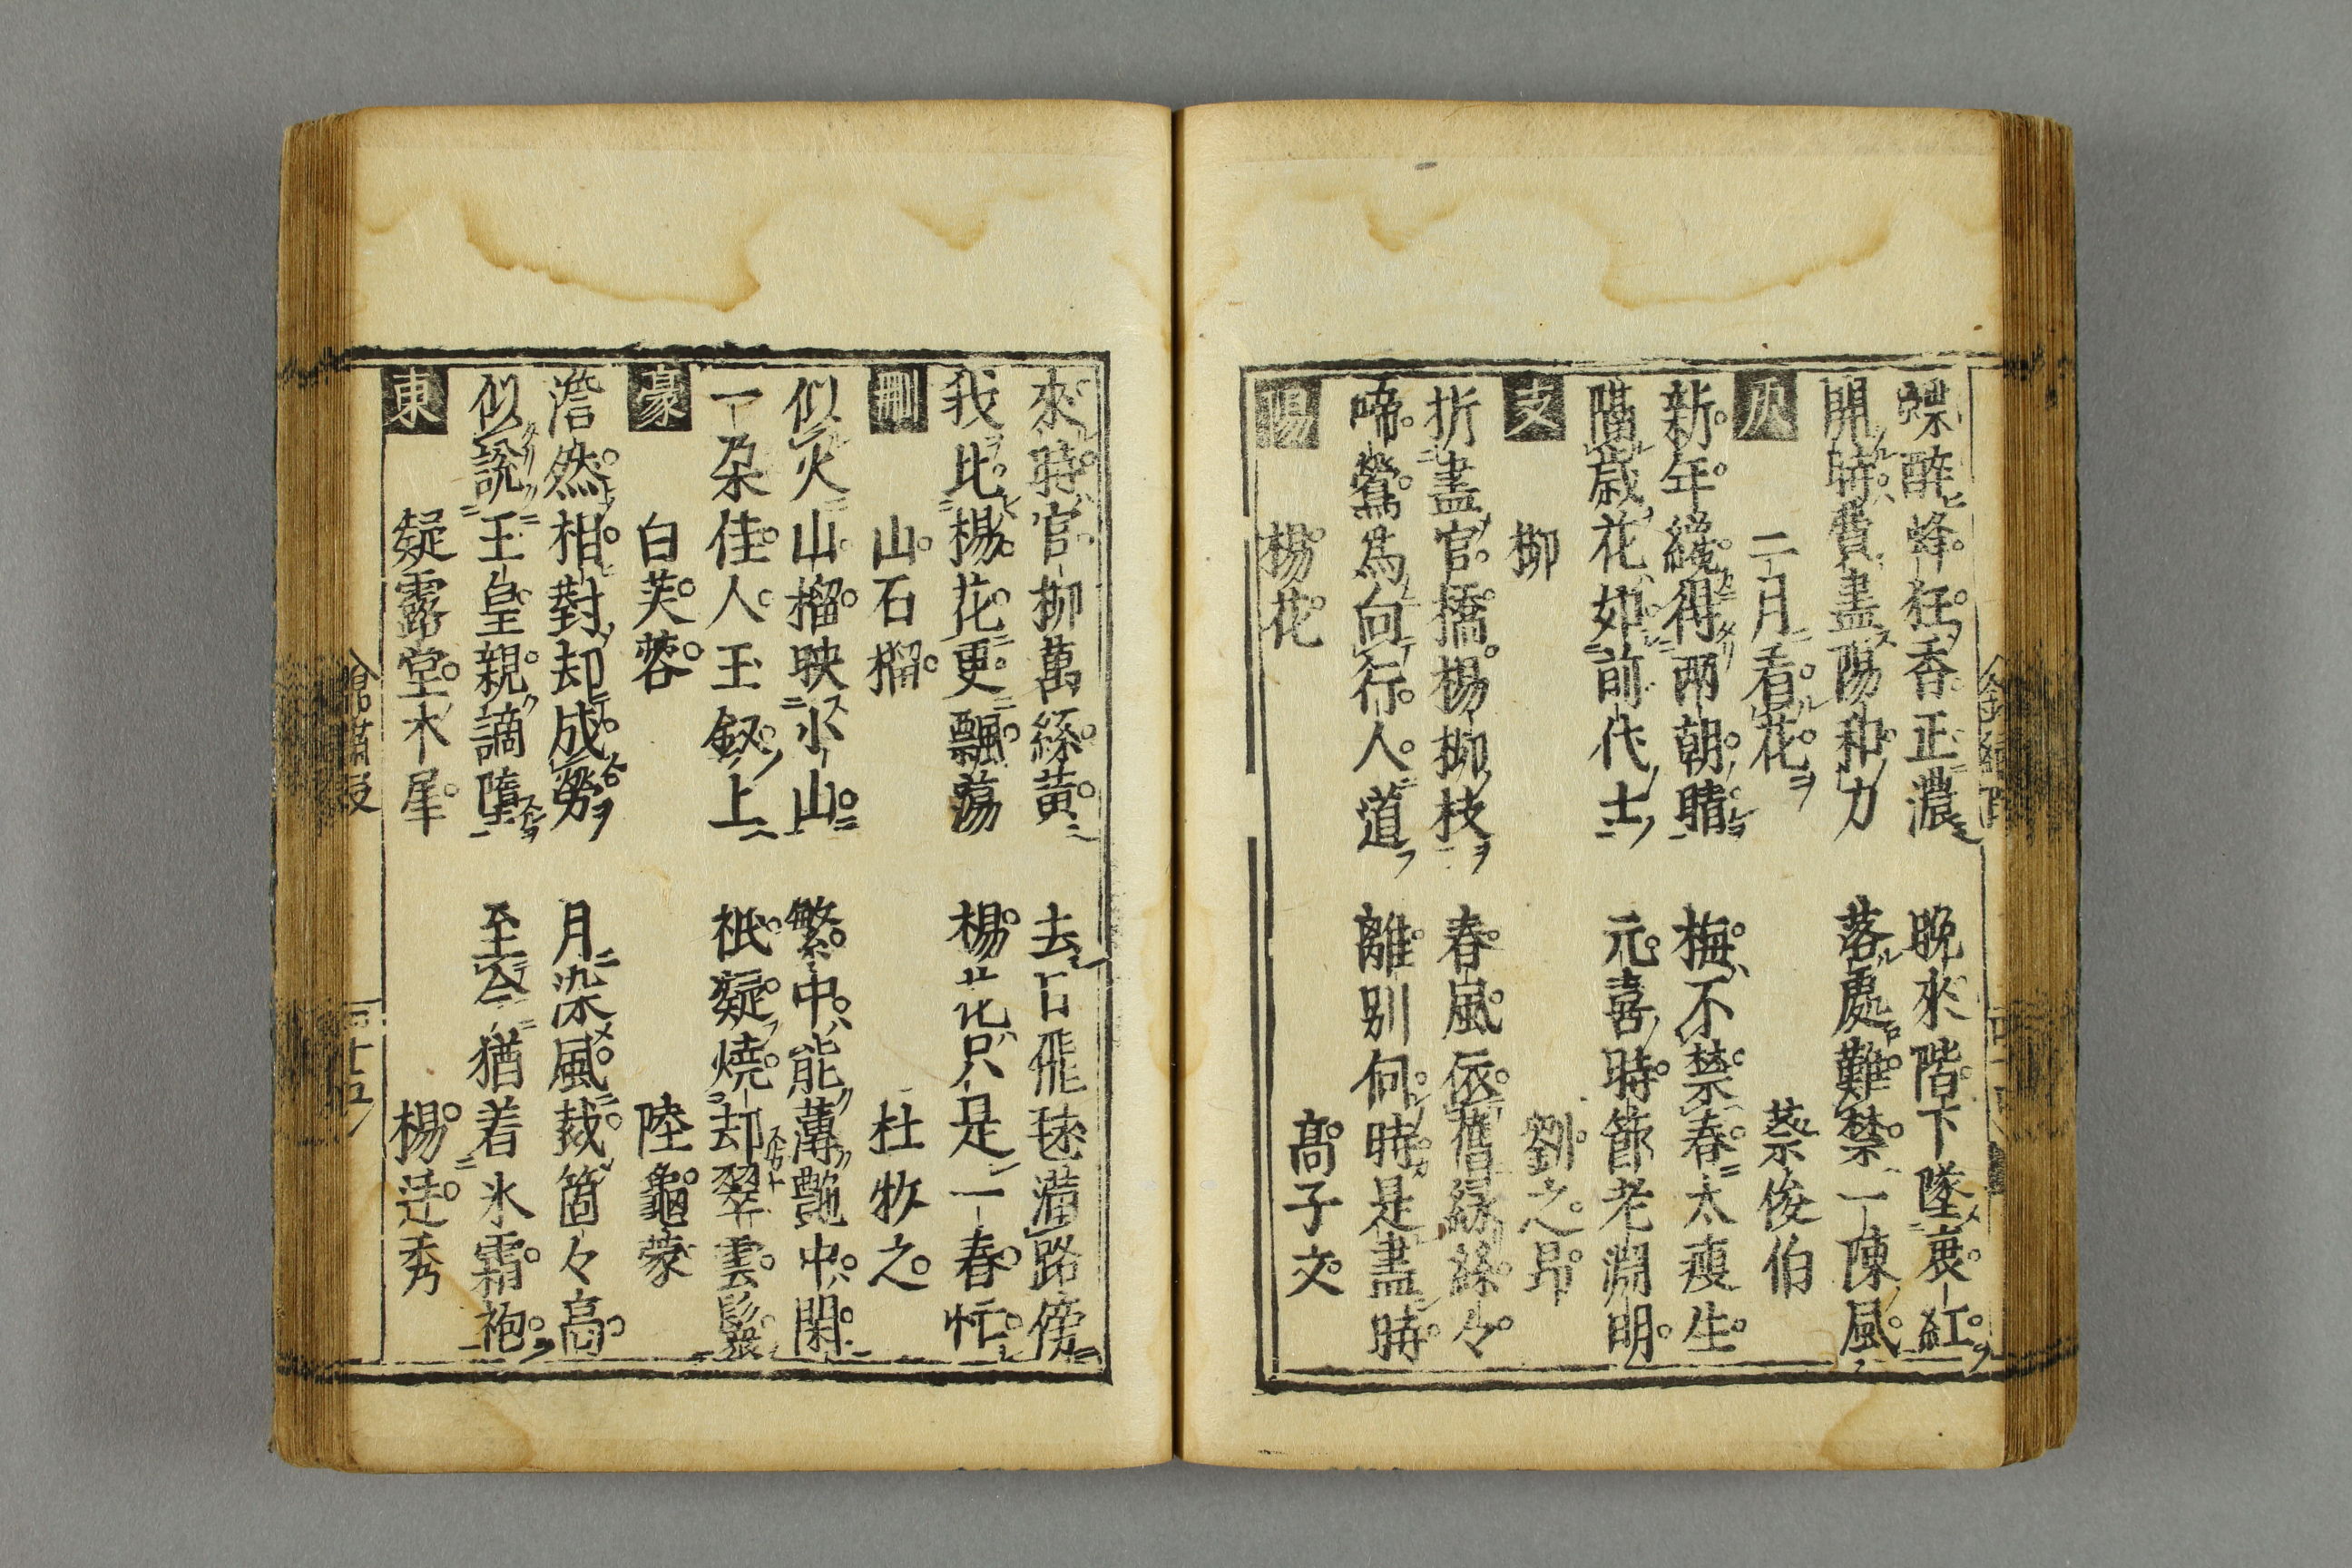 蝶醉蜂狂香正濃　晩來階下墜衰紅
開時費盡陽和力　落處難禁一陳風
二月看花　蔡俊伯
新年纔得兩朝晴　梅不禁春太瘦生
隔歳花如前代士　元喜時節老淵明
支　柳　劉之昂
折盡官橋楊柳枝　春風依舊緑絲々
啼鶯為向行人道　離別何時是盡時
陽　楊花　高子文
來時官柳萬絲黄　去日飛毬滿路傍
我比楊花更飄蕩　楊花只是一春忙
刪　山石榴　杜牧之
似火山榴映小山　繁中能薄艶中閑
一朶佳人玉釵上　祇疑燒却翠雲鬟
豪　白芙蓉　陸龜蒙
澹然相對却成勞　月染風裁箇々高
似説玉皇親謫墮　至今猶着氷霜袍
東　疑露堂木犀　楊廷秀